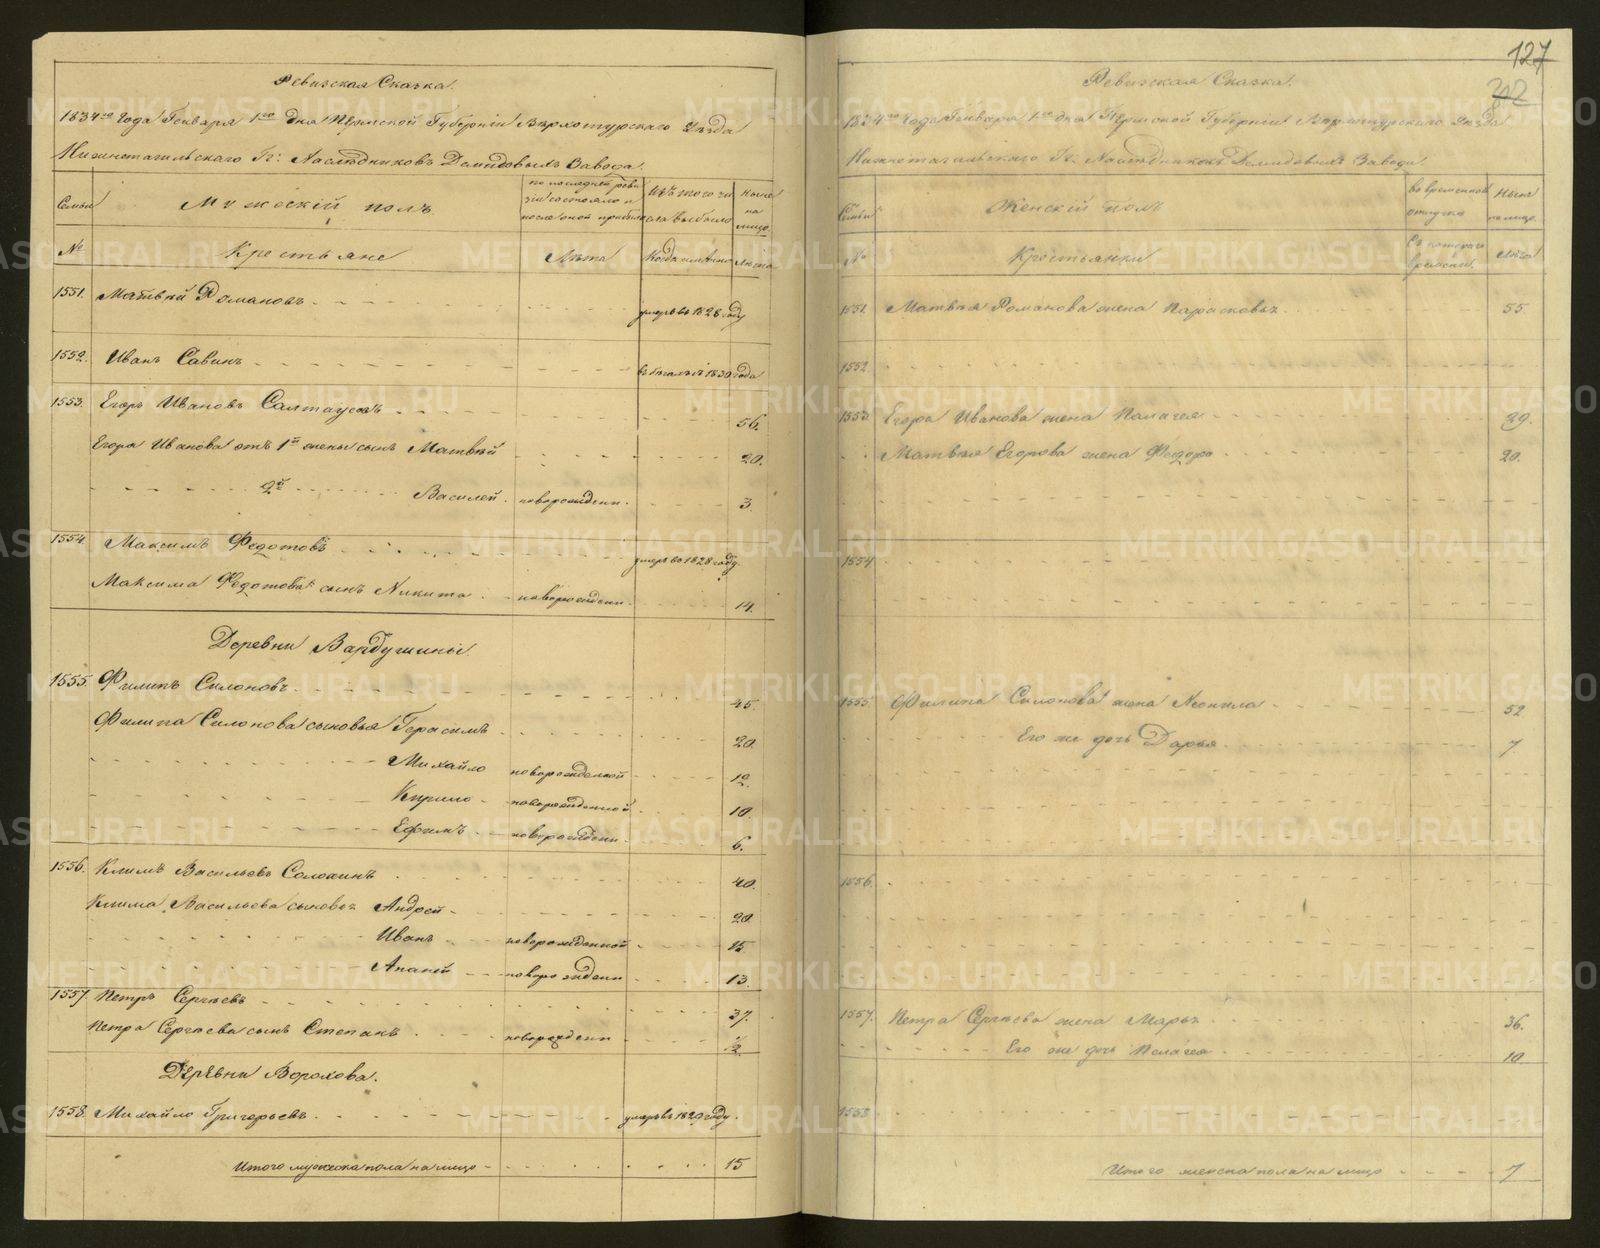 Ревизская Сказка.
1834го Года Генваря 1го дня Пермской Губернии Верхотурскаго Уезда
Нижнетагильскаго Гг: Наследниковъ Демидовыхъ Завода.
Семьи
Мужескій полъ
по последней ревизіи состояло и после оной прибыло
Изъ того числа выбыло
Ныне на лицо.
№
Крестьяне
Лѣта
Когда имянно
Лѣта
1551. Матвѣй Романовъ умеръ въ 1826 году
1552. Иванъ Савинъ въ бегахъ 1830 года
1553. Егоръ Ивановъ 56.
Егора Иванова отъ 1й жены сынъ Матвѣй 20.
2й Василей новорожден. 3.
1554 Максимъ Федотовъ умеръ въ 1828 году.
Максима Федотова сынъ Никита новорожден. 14.
Деревни
1555. Филипъ Силоновъ. 45.
Филипа Силонова сыновья Герасимъ 20.
Михайло новорожденной 12.
Кирило новорожденной 10.
Ефимъ новорожден. 6.
1556. Климъ Васильевъ Солохинъ 40.
Клима Васильева сыновья Андрей 20.
Иванъ новорожденной 15.
Ананей новорожден 13.
1557. Петръ Сергѣевъ 37.
Петра Сергѣева сынъ Степанъ новорожден 1/2
Деревни Ворохова.
1558. Михайло Григорьевъ умеръ въ 1829 году.
Итого мужеска пола на лицо 15
127
312
Ревизская Сказка.
1834го Года Генваря 1го дня Пермской Губернии Верхотурскаго Уезда
Нижнетагильскаго Гг: Наследниковъ Демидовыхъ Завода.
Семьи
Женскій полъ
во временной отлучке
Ныне на лицо.
№
Крестьянки
Съ котораго времени.
Лѣта
1551. Матвѣя Романова жена Парасковья 55.
1552
1553. Егора Иванова жена Палагея 39.
Матвѣя Егорова жена Федора 20.
1554
1555. Филипа Силонова жена Неонила 52
Его же дочь Дарья 7
1556.
1557. Петра Сергѣева жена Марья 36.
Его же дочь Пелагея 10.
1558
Итого женска пола на лицо 7
METRIKI.GASO-URAL.RU